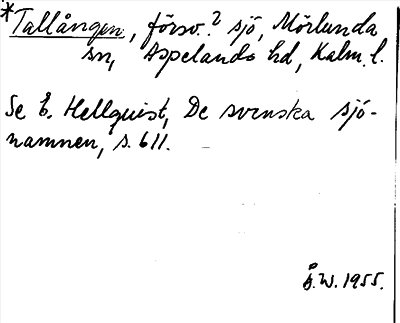 *Tallången, försv.? sjö, Mörlunda
sn, Aspelands hd, Kalm. l.
Se E. Hellquist, De svenska sjö-
namnen, s. 611.
Å.W. 1955.